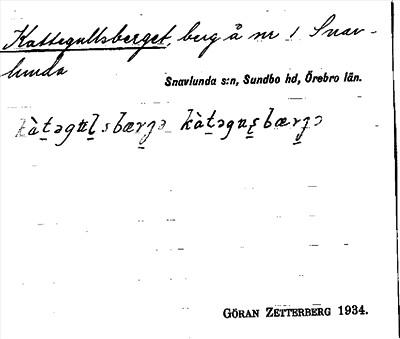 Kattegullsberget, berg å nr 1 Snav-
lunda
Snavlunda s:n, Sundbo hd, Örebro län.
kàt̲əgʉl̲sbær̲ȝɔ kàt̲əgʉş̲bær̲ȝɔ
GÖRAN ZETTERBERG 1934.